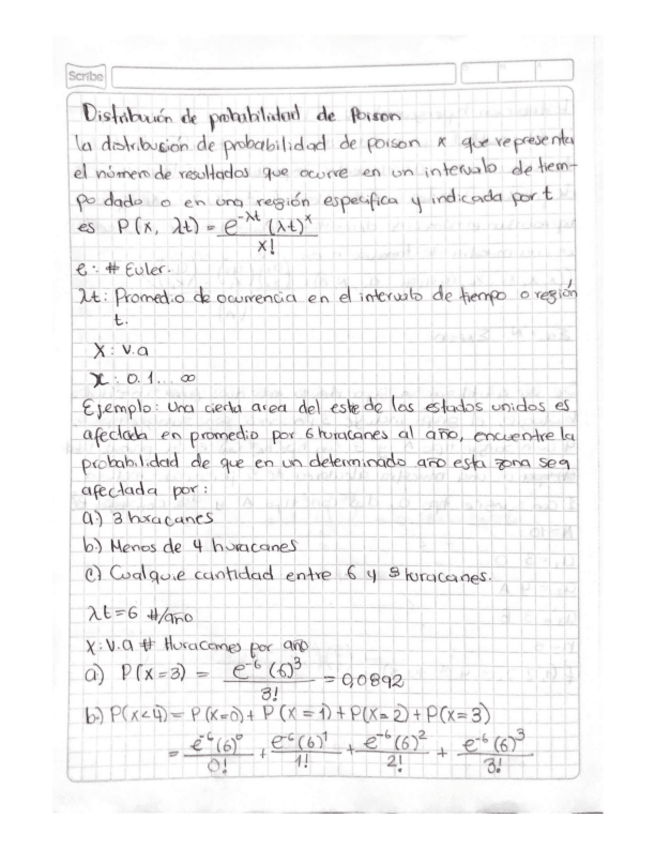 Scribe
Distribución de probabilidad de Poison
la distribución de probabilidad de poison x que representa
el número de resultados que ocurre en un intervalo de tiem-
po dado o en una región especifica y indicada por t
es P(x, λt) = e^-λt (λt)^x / x!
e: # Euler.
λt: Promedio de ocurrencia en el intervalo de tiempo o región
t.
X: v.a
x: 0.1... ∞
Ejemplo: una cierta area del este de los estados unidos es
afectada en promedio por 6 huracanes al año, encuentre la
probabilidad de que en un determinado año esta zona sea
afectada por:
a.) 3 huracanes
b.) Menos de 4 huracanes
c) Cualquie cantidad entre 6 y 8 huracanes.
λt=6 #/año
x: v.a # Huracanes por año
a) P(x=3) = e^-6 (6)^3 / 3! = 0,0892
b.) P(x<4) = P(x=0) + P(x=1) + P(x=2) + P(x=3)
= e^-6 (6)^0 / 0! + e^-6 (6)^1 / 1! + e^-6 (6)^2 / 2! + e^-6 (6)^3 / 3!